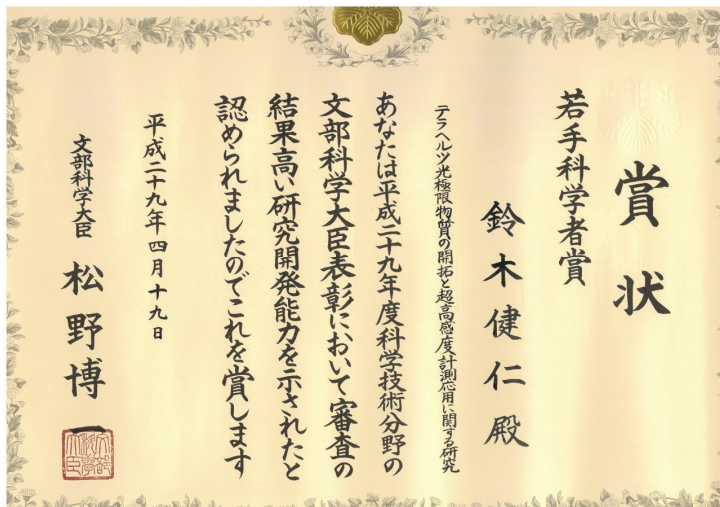 賞状
若手科学者賞
鈴木健仁殿
テラヘルツ光極限物質の開拓と超高感度計測応用に関する研究
あなたは平成二十九年度科学技術分野の
文部科学大臣表彰において審査の
結果高い研究開発能力を示されたと
認められましたのでこれを賞します
平成二十九年四月十九日
文部科学大臣
松野博一